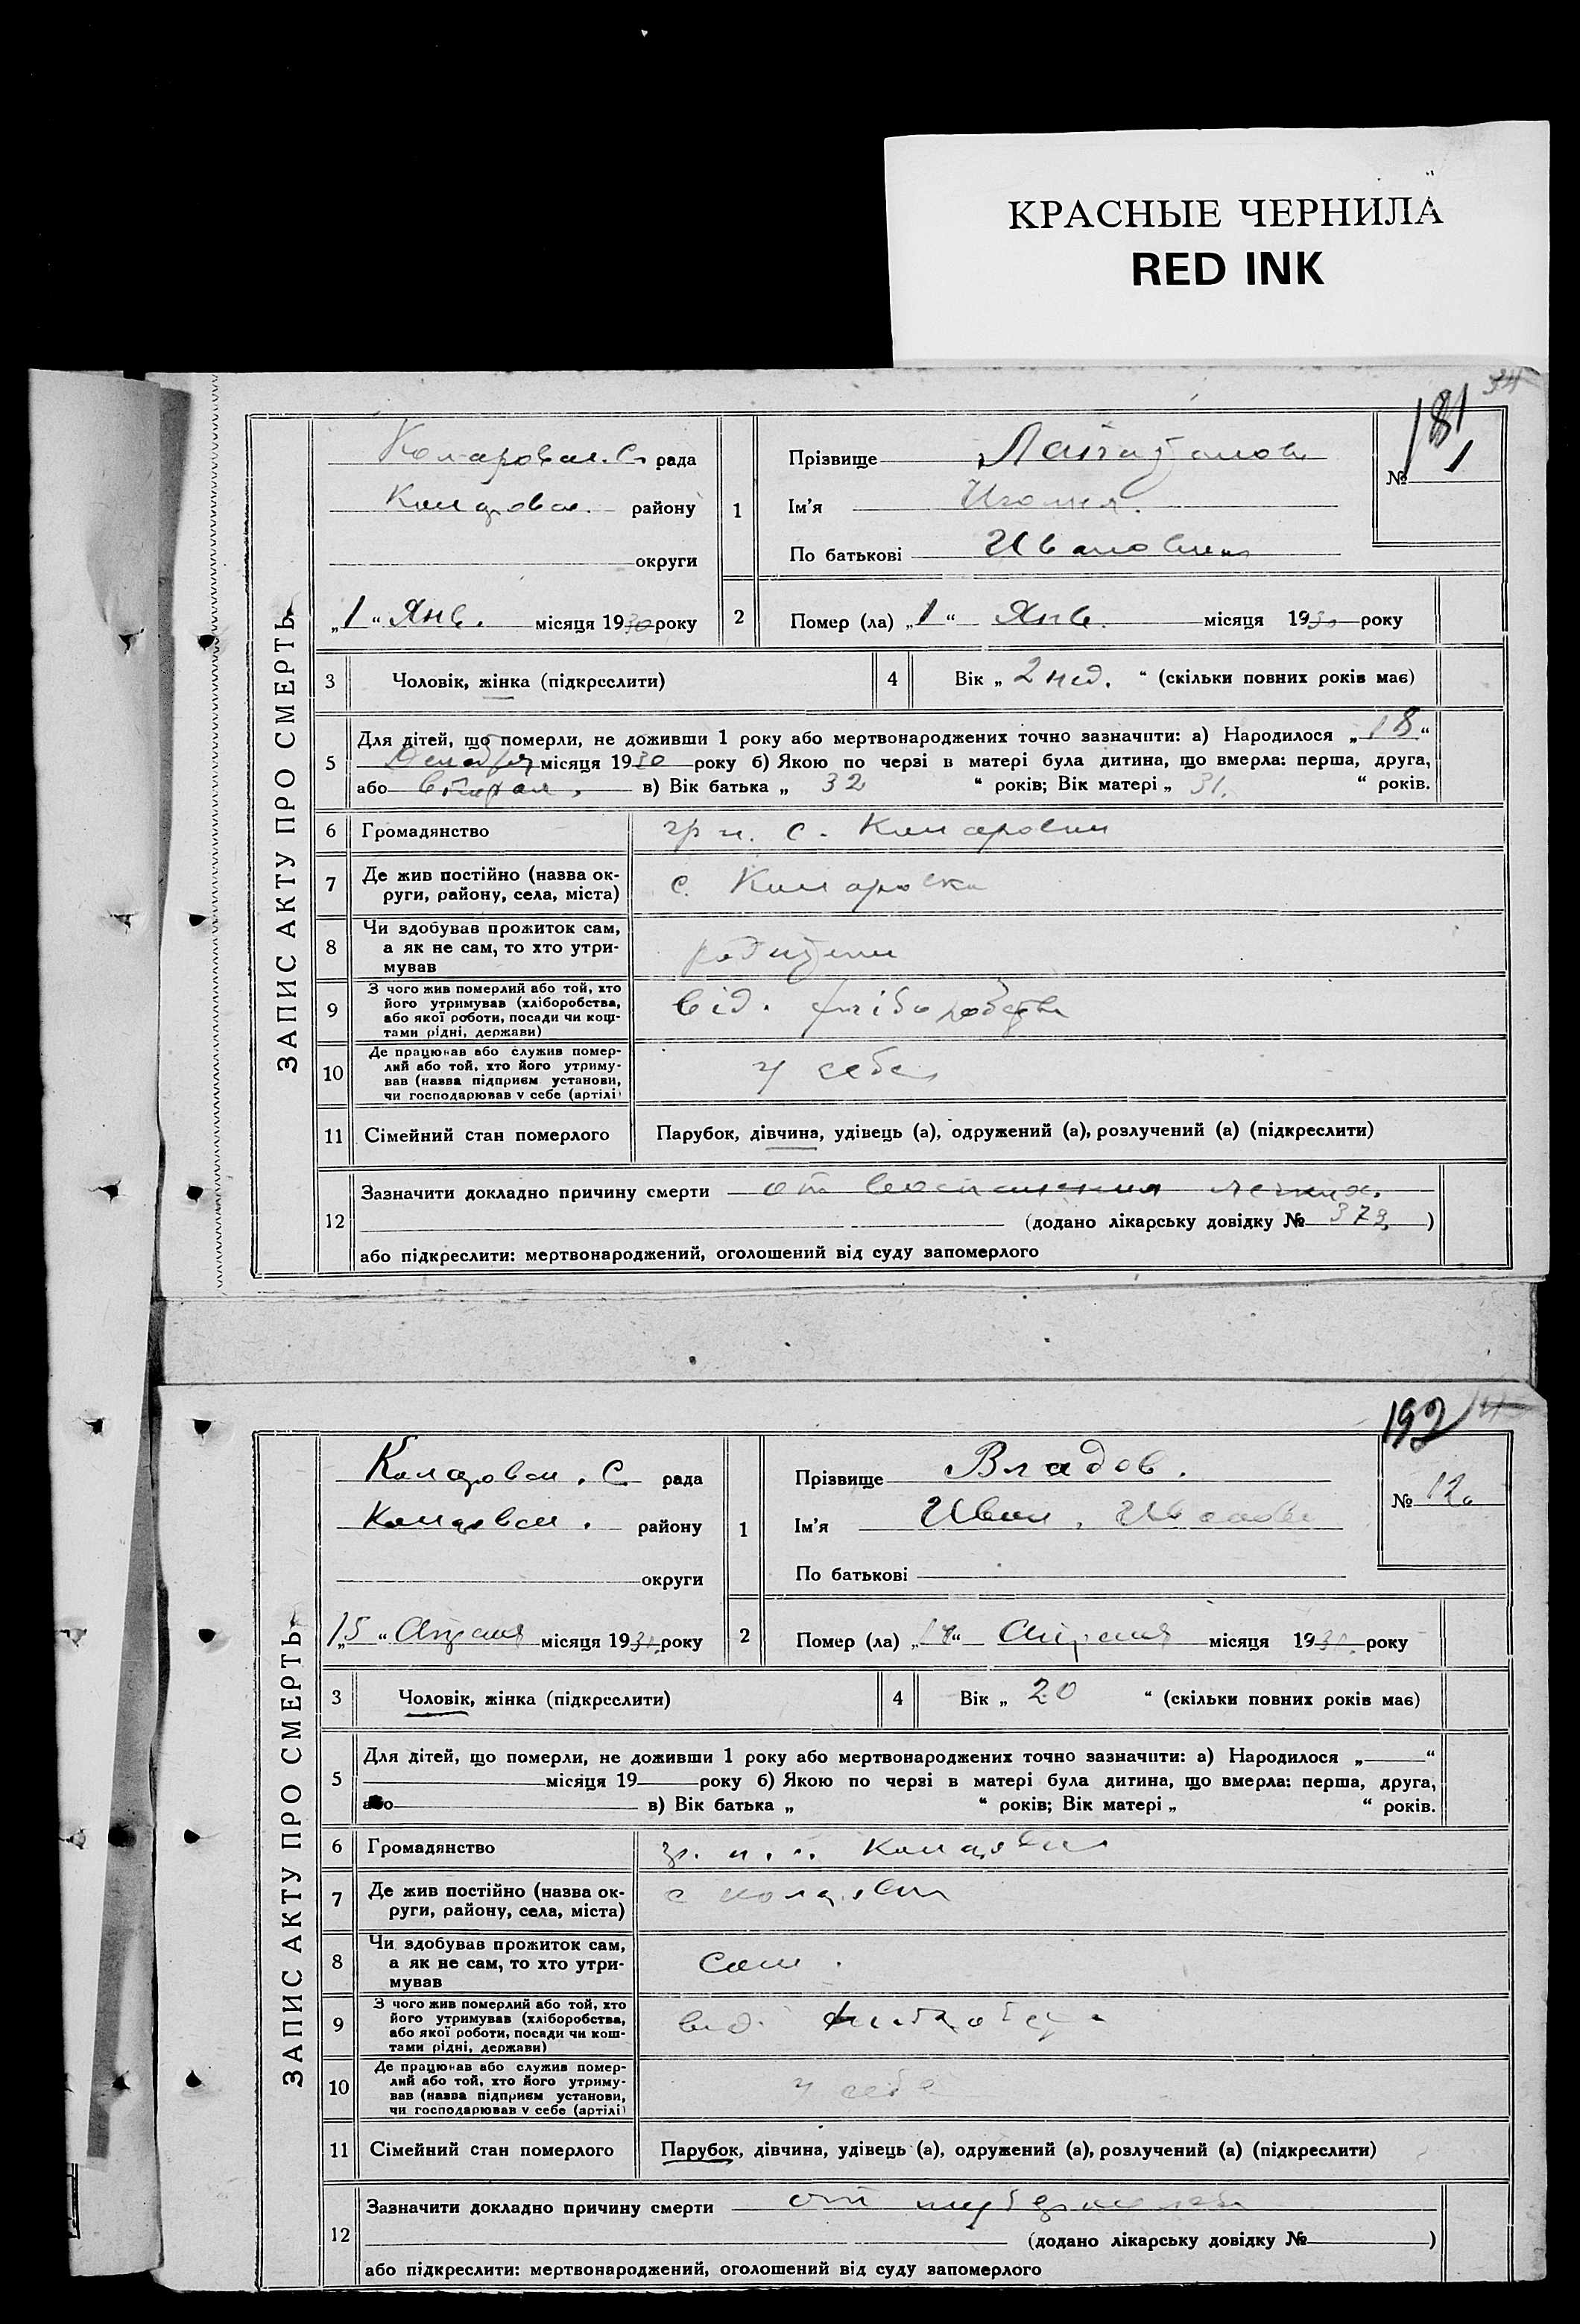 КРАСНЫЕ ЧЕРНИЛА
RED INK
181
ЗАПИС АКТУ ПРО СМЕРТЬ
Комаровск. С. рада
району
округи
„1“ Янв. місяця 1930 року
1
Прізвище
Ім'я
По батькові Ивановна
№ 1
2
Помер (ла) „1“ Янв. місяця 1930 року
3 Чоловік, жінка (підкреслити)
4 Вік „ 2 нед. “ (скільки повних років має)
5 Для дітей, що померли, не доживши 1 року або мертвонароджених точно зазначити: а) Народилося „ 18 “
Декабря місяця 1930 року б) Якою по черзі в матері була дитина, що вмерла: перша, друга,
або вторая. в) Вік батька „ 32 “ років; Вік матері „ 31. “ років.
6 Громадянство гр н. с. Комаровки
7 Де жив постійно (назва ок-
руги, району, села, міста) с. Комаровка
8 Чи здобував прожиток сам,
а як не сам, то хто утри-
мував родители
9 З чого жив померлий або той, хто
його утримував (хліборобства,
або якої роботи, посади чи кош-
тами рідні, держави) від. хліборобства
10 Де працював або служив помер-
лий або той, хто його утриму-
вав (назва підприєм установи,
чи господарював у себе (артілі) у себе
11 Сімейний стан померлого Парубок, дівчина, удівець (а), одружений (а), розлучений (а) (підкреслити)
12 Зазначити докладно причину смерти от воспаления легких.
(додано лікарську довідку № 379)
або підкреслити: мертвонароджений, оголошений від суду запомерлого
192
ЗАПИС АКТУ ПРО СМЕРТЬ
Комаровск. С. рада
Комаровск. району
округи
„15“ Апреля місяця 1931 року
1
Прізвище Владов.
Ім'я Иван, Иванов
По батькові
№ 12
2
Помер (ла) Апреля місяця 1931. року
3 Чоловік, жінка (підкреслити)
4 Вік „ 20 “ (скільки повних років має)
5 Для дітей, що померли, не доживши 1 року або мертвонароджених точно зазначити: а) Народилося „ “
місяця 19 року б) Якою по черзі в матері була дитина, що вмерла: перша, друга,
або в) Вік батька „ “ років; Вік матері „ “ років.
6 Громадянство гр. н. с. Комаровки
7 Де жив постійно (назва ок-
руги, району, села, міста) с Комаровки
8 Чи здобував прожиток сам,
а як не сам, то хто утри-
мував Сам.
9 З чого жив померлий або той, хто
його утримував (хліборобства,
або якої роботи, посади чи кош-
тами рідні, держави) від. хлібороб
10 Де працював або служив помер-
лий або той, хто його утриму-
вав (назва підприєм установи,
чи господарював у себе (артілі) у себе
11 Сімейний стан померлого Парубок, дівчина, удівець (а), одружений (а), розлучений (а) (підкреслити)
12 Зазначити докладно причину смерти от туберкулеза
(додано лікарську довідку № )
або підкреслити: мертвонароджений, оголошений від суду запомерлого